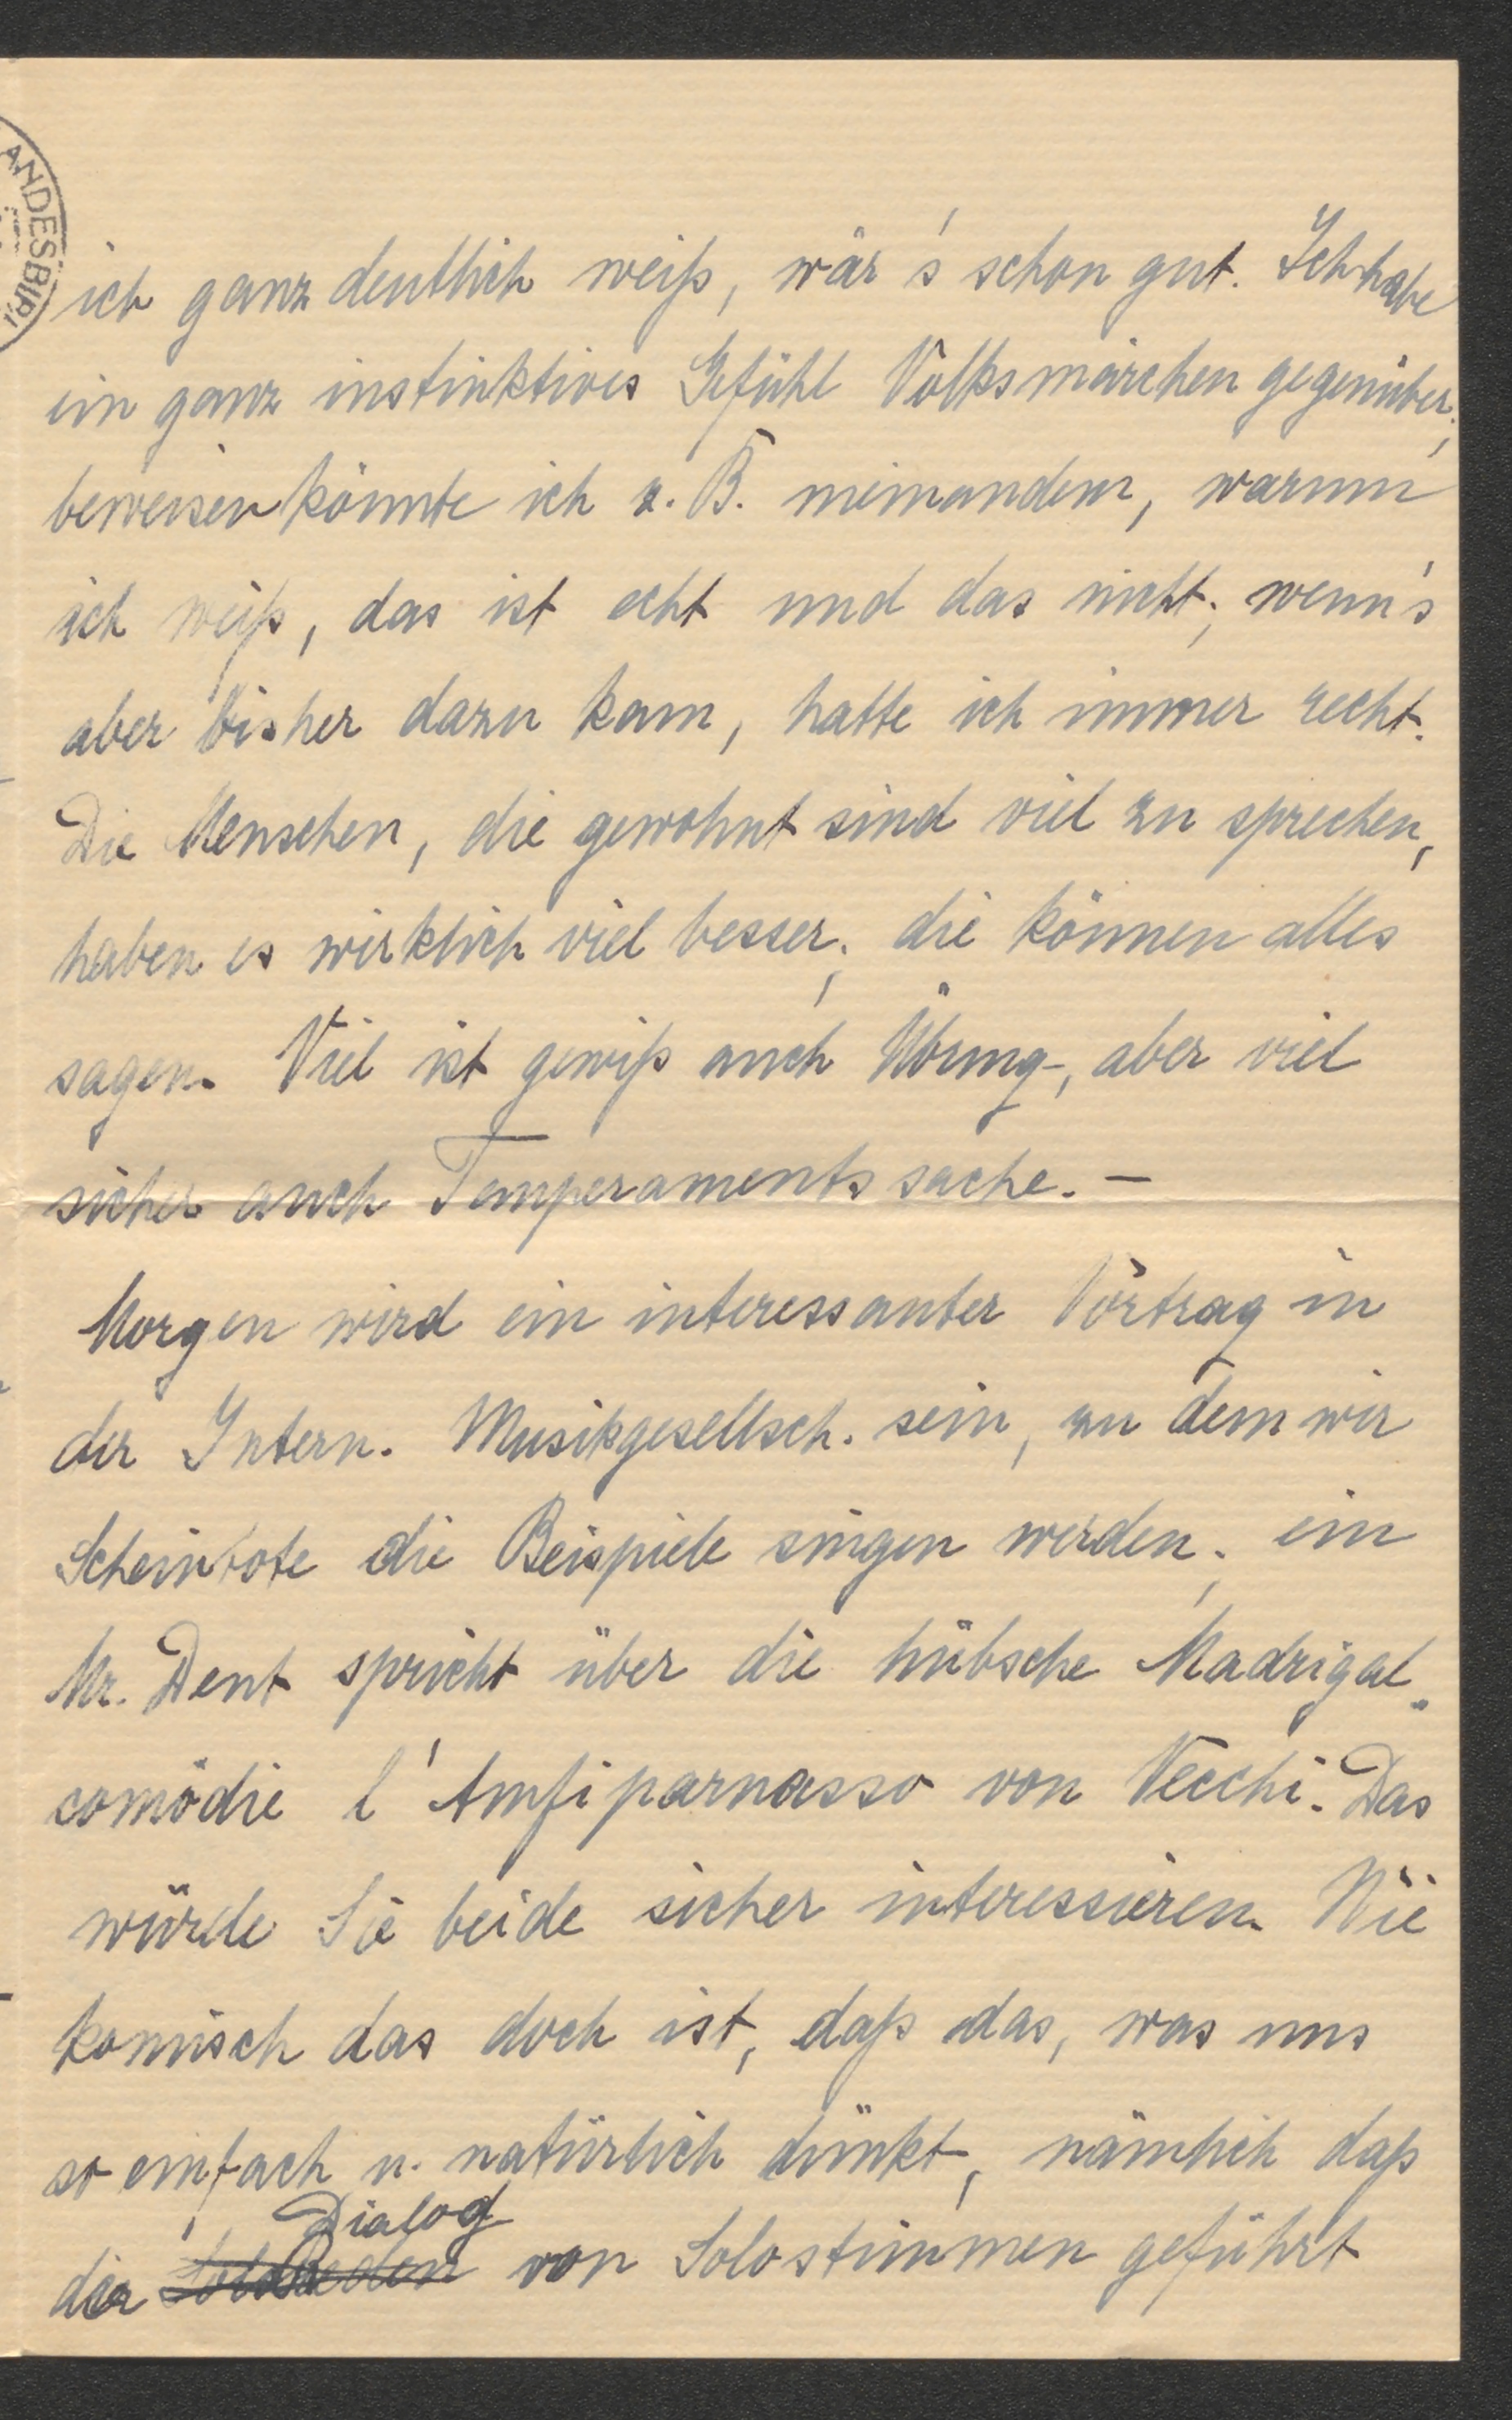 ANDESBIB
ich ganz deutlich weiß, wär's schon gut. Ich habe
ein ganz instinktives Gefühl Volksmärchen gegenüber;
beweisen könnte ich z. B. niemandem, warum
ich weiß, das ist echt und das nicht; wenn's
aber bisher dazu kam, hatte ich immer recht.
Die Menschen, die gewohnt sind viel zu sprechen,
haben es wirklich viel besser; die können alles
sagen. Viel ist gewiß auch Übung, aber viel
sicher auch Temperamentssache. –
Morgen wird ein interessanter Vortrag in
der Intern. Musikgesellsch. sein, zu dem wir
Scheintote die Beispiele singen werden; ein
Mr. Dent spricht über die hübsche Madrigal-
comödie l'Amfiparnasso von Vecchi. Das
würde Sie beide sicher interessieren. Wie
komisch das doch ist, daß das, was uns
so einfach u. natürlich dünkt, nämlich daß
Dialog
der von Solostimmen geführt